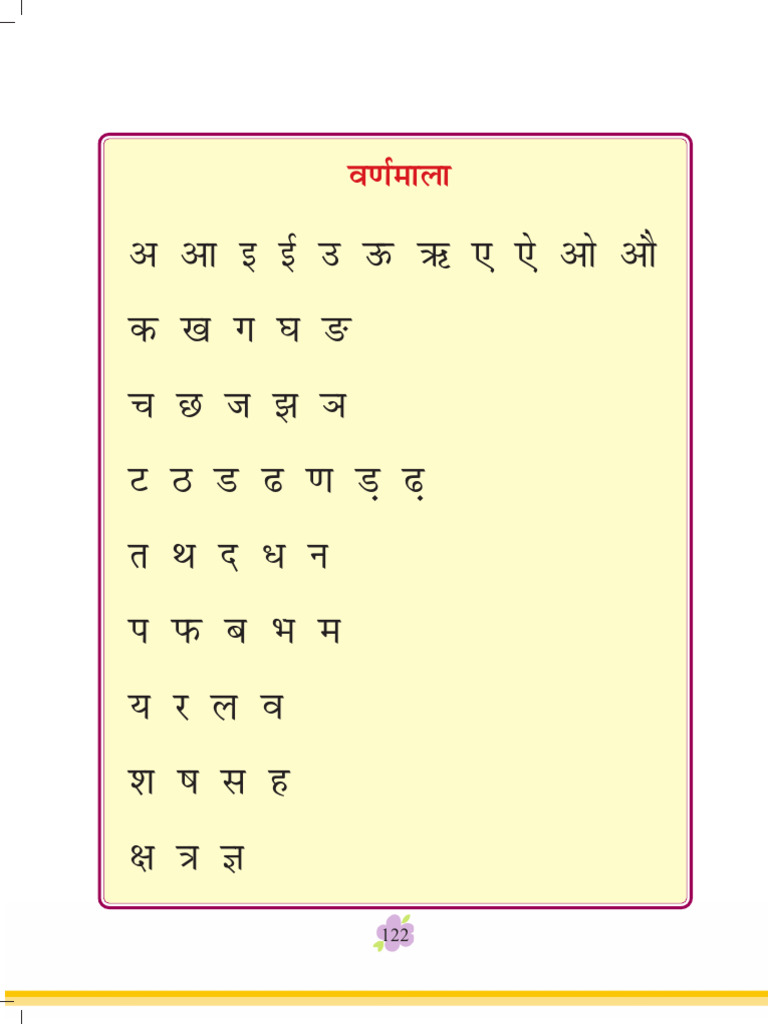 वर्णमाला
अ आ इ ई उ ऊ ऋ ए ऐ ओ औ
क ख ग घ ङ
च छ ज झ ञ
ट ठ ड ढ ण ड़ ढ़
त थ द ध न
प फ ब भ म
य र ल व
श ष स ह
क्ष त्र ज्ञ
122